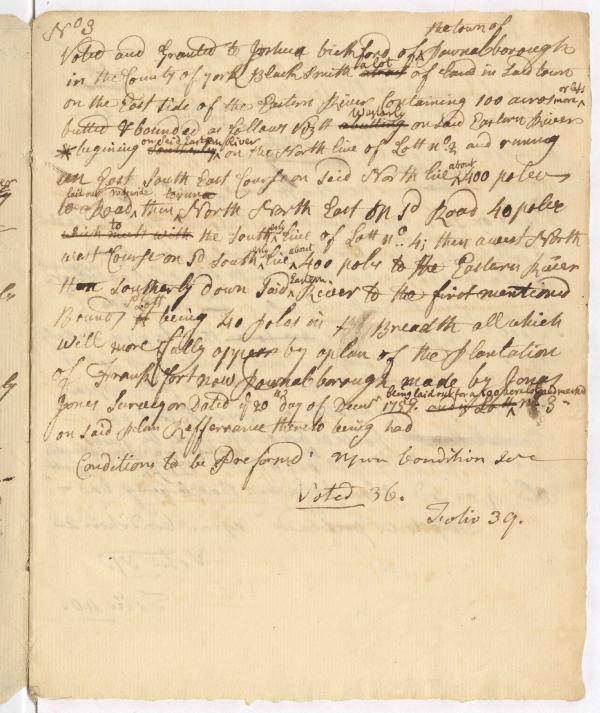 No 3
the town of
Voted and Granted to Joshua bickford of ^ Pownalborough
in the County of york Black Smith a Lot of Land in said town
on the East side of the Eastern River Containing 100 acres more or less
butted & bounded as follows Viz Westerly abutting on said Eastern River
* begining Southerly on said Eastern River ^ on the North line of Lott no. 3 and runing
an East South East Course on said North line about ^ 400 poles
laid out rodwide to run
to a Road ^ then ^ North North East on sd Road 40 poles
which to the South line of Lott no. 4; then a west North
west Course on sd South line about ^ 400 poles to the Eastern River
then Southerly down said Eastern ^ River to the first mentioned
Bounds sd Lott being 40 poles in Breadth all which
will more fully appear by a plan of the Plantation
of Frankfort now Pownalborough made by Jonas
Jones Surveyor Dated ye 20th day of Decemr 1759. being laid out for a 100 acre lot and marked ^ no 3
on said plan Refferrance thereto being had
Conditions to be Preformd Upon Condition &c
Voted 36.
Folio 39.